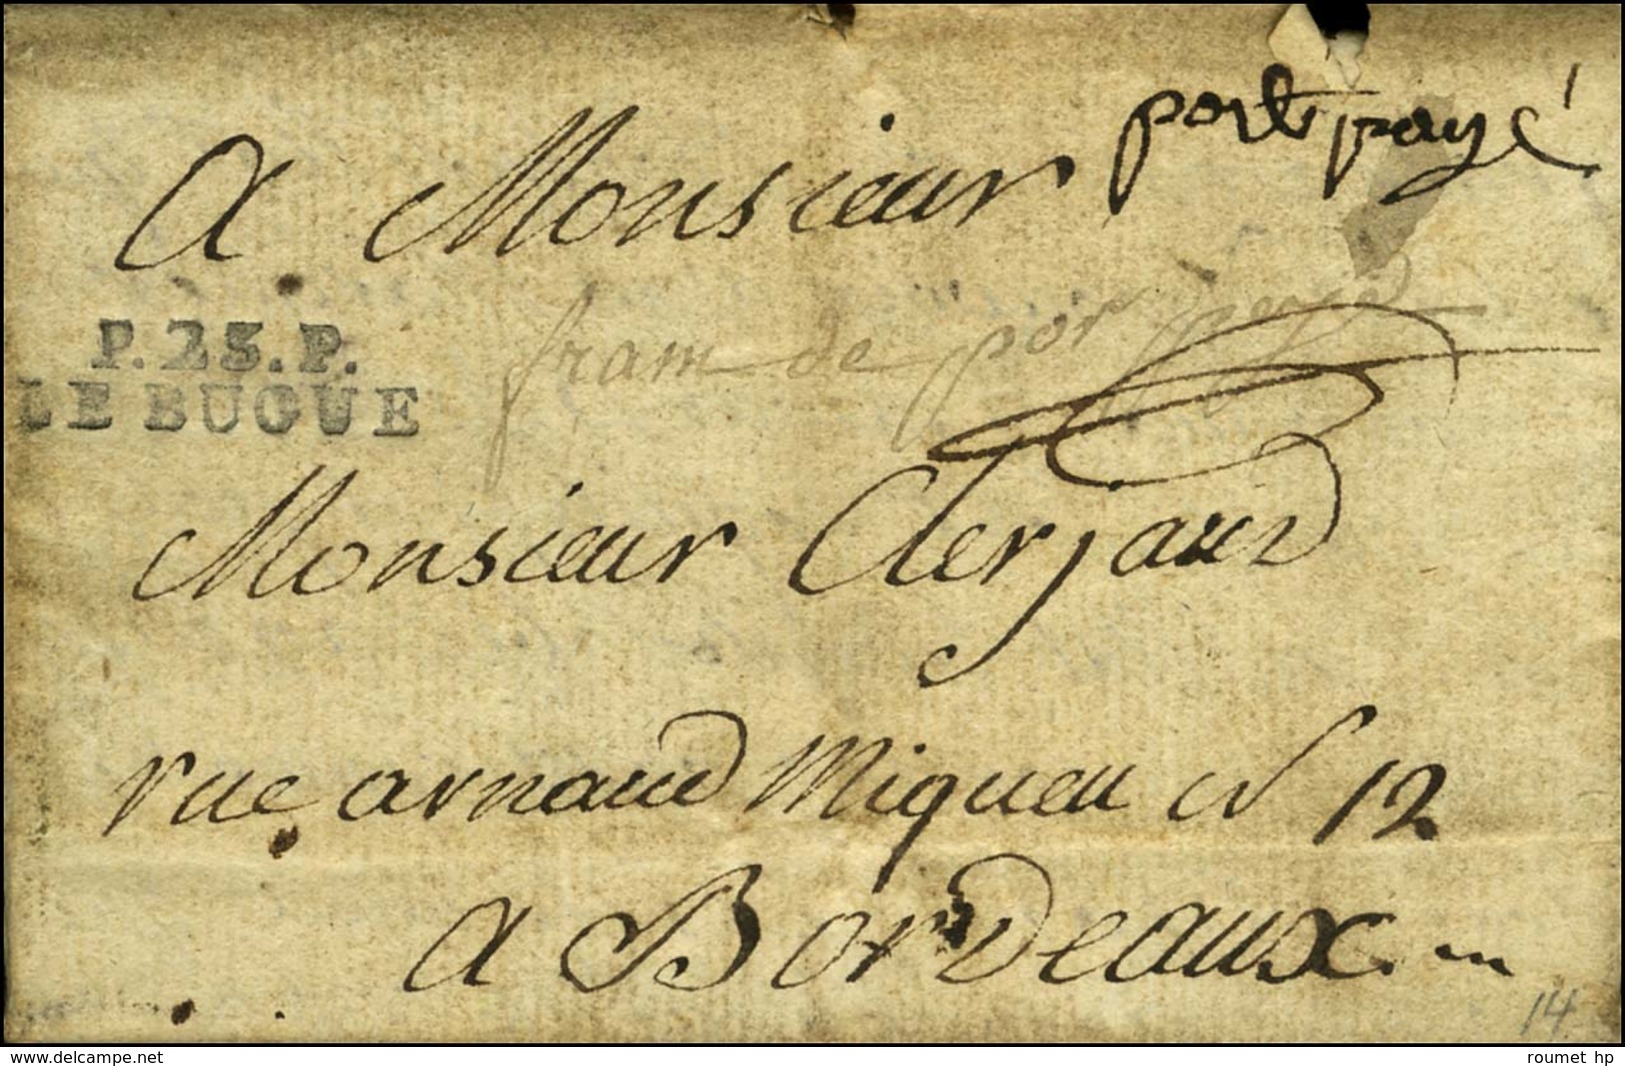 port payé
A Monsieur
P.23.P.
LE BUGUE
fram de por peyé
Monsieur Clerjaud
rue arnaud Miqueu N 12
a Bordeaux
14
www.delcampe.net
roumet hp